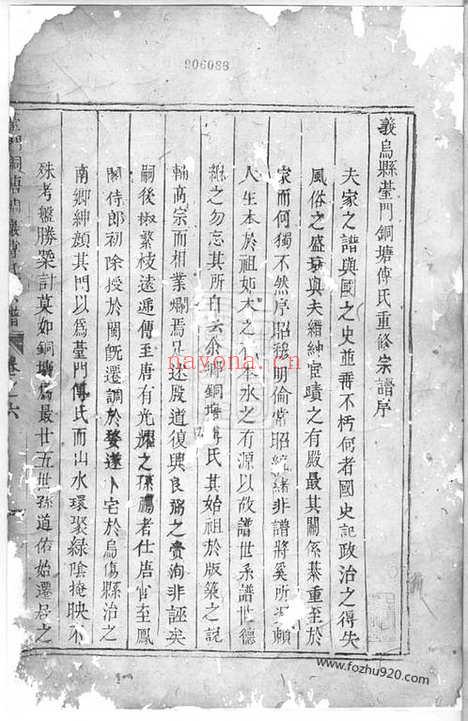 906088
義烏縣臺門銅塘傅氏重修宗譜序
夫家之譜與國之史並垂不朽何者國史記政治之得失
風俗之盛衰與夫縉紳宦蹟之有殿最其關係綦重至於
家而何獨不然序昭穆明倫常昭統緒非譜將奚所
人生本於祖如木之 本水之有源以故譜世系譜世德
之勿忘其所自云 銅塘傅氏其始祖於版築之說
輔高宗而相業爛焉 殷道復興良弼之賚洵非誣矣
嗣後椒繁枝遠遞傳至唐有光 之孫 者仕唐官至鳳
閣侍郎初除授於閩旣遷調於婺遂卜宅於烏傷縣治之
南鄉紳顏其門以爲臺門傅氏而山水環聚綠陰掩映不
殊考盤勝槩計莫如銅塘爲最廿五世孫道佑始遷居之
nayona.cn
www.fozhu920.com